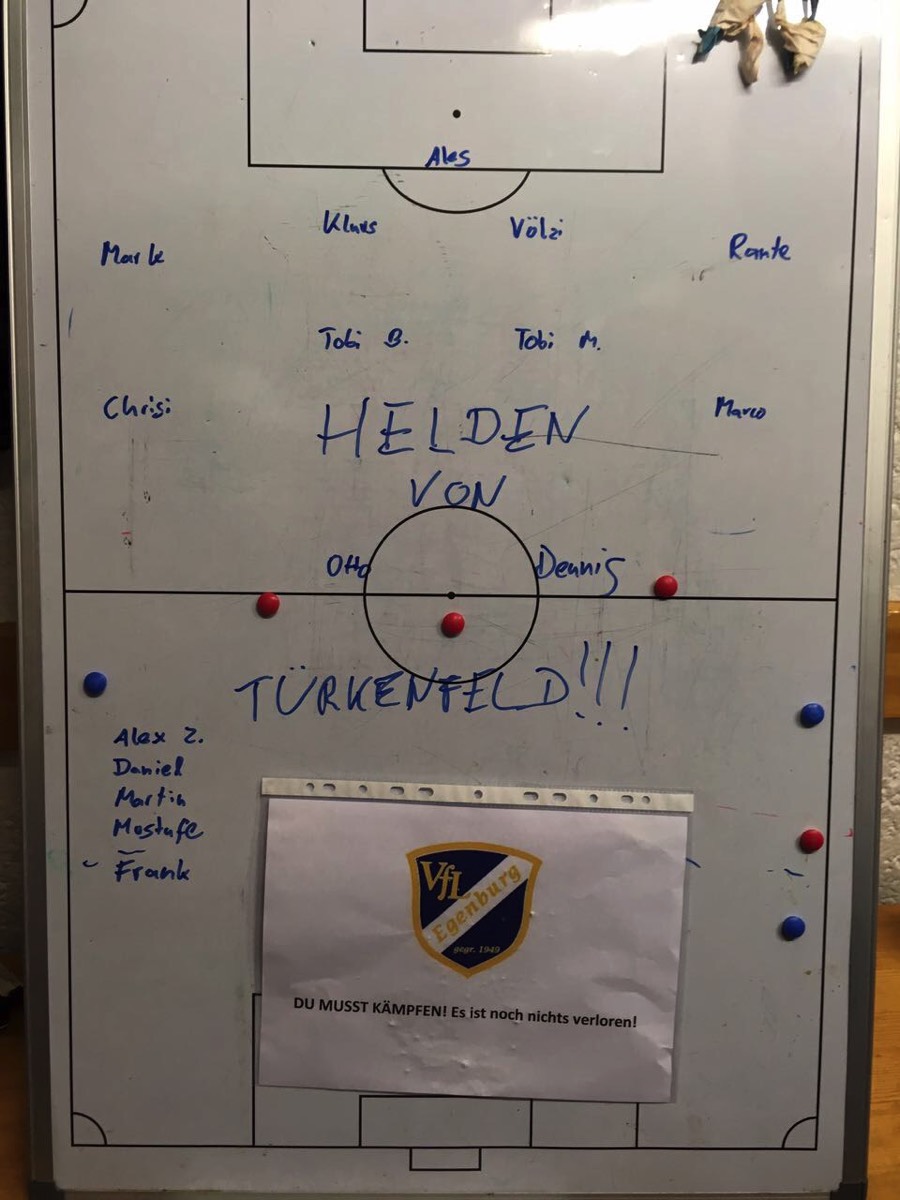 Ales
Klaus Völzi
Mark Rante
Tobi B. Tobi M.
Chrisi Marco
HELDEN
VON
Otto Dennis
TÜRKENFELD!!!
Alex Z.
Daniel
Martin
Mostafe
Frank
VfL
Egenburg
gegr. 1949
DU MUSST KÄMPFEN! Es ist noch nichts verloren!